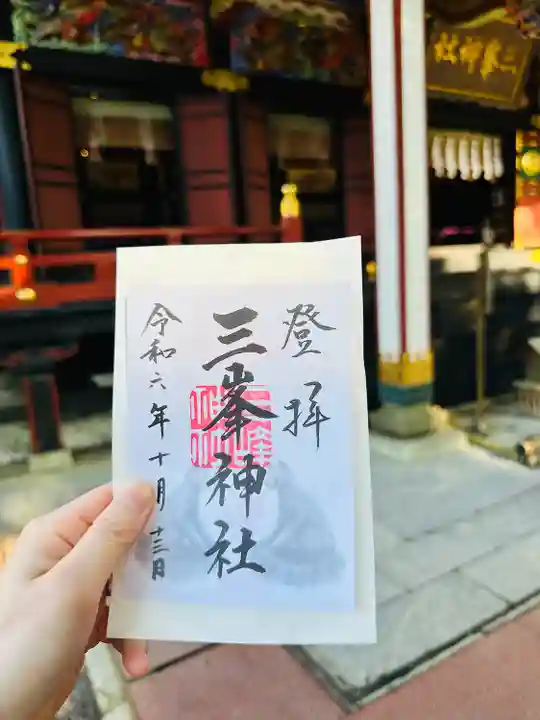 三峯神社
登拝
三峯神社
令和六年十月十三日